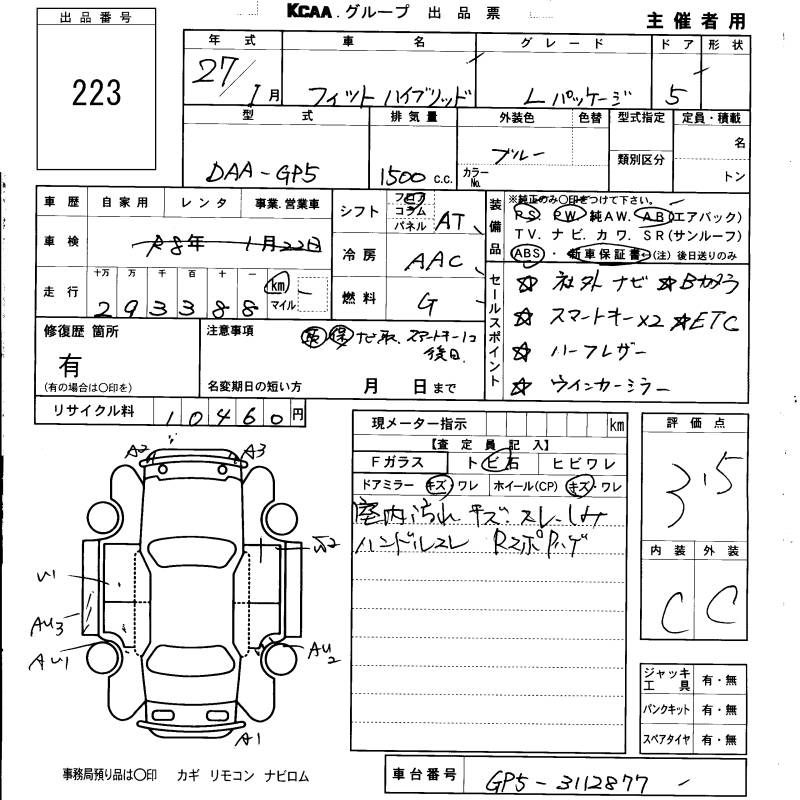 KCAA グループ 出品票
主催者用
出品番号
223
年式 車名 グレード ドア 形状
27/1月 フィットハイブリッド Lパッケージ 5
型式 排気量 外装色 色替 型式指定 定員・積載
DAA-GP5 1500 c.c. ブルー カラーNo. 類別区分 名 トン
車歴 自家用 レンタ 事業.営業車
車検 R8年 1月22日
走行 十万 万 千 百 十 一
293388 km マイル
シフト フロア コラム パネル AT
冷房 AAC
燃料 G
装備品
※純正のみ〇印をつけて下さい。
PS PW 純AW. AB(エアバック)
TV. ナビ. カワ. SR(サンルーフ)
ABS・新車保証書(注)後日送りのみ
セールスポイント
☆ 社外ナビ ☆Bカメラ
☆ スマートキー×2 ☆ETC
☆ ハーフレザー
☆ ウインカーミラー
修復歴 箇所
有
(有の場合は〇印を)
注意事項 保 ナビ取、スマートキー1コ
後日
名変期日の短い方 月 日まで
リサイクル料 10460円
現メーター指示 km
【査定員記入】
Fガラス トビ石 ヒビワレ
ドアミラー キズ・ワレ ホイール(CP) キズ・ワレ
室内汚れ キズ.スレ.しみ
ハンドルスレ Rスポハゲ
評価点
3.5
内装 外装
C C
A2 A3
U1
AU3
AU1
AU2
A1
ジャッキ工具 有・無
パンクキット 有・無
スペアタイヤ 有・無
事務局預り品は〇印 カギ リモコン ナビロム
車台番号 GP5-3112877